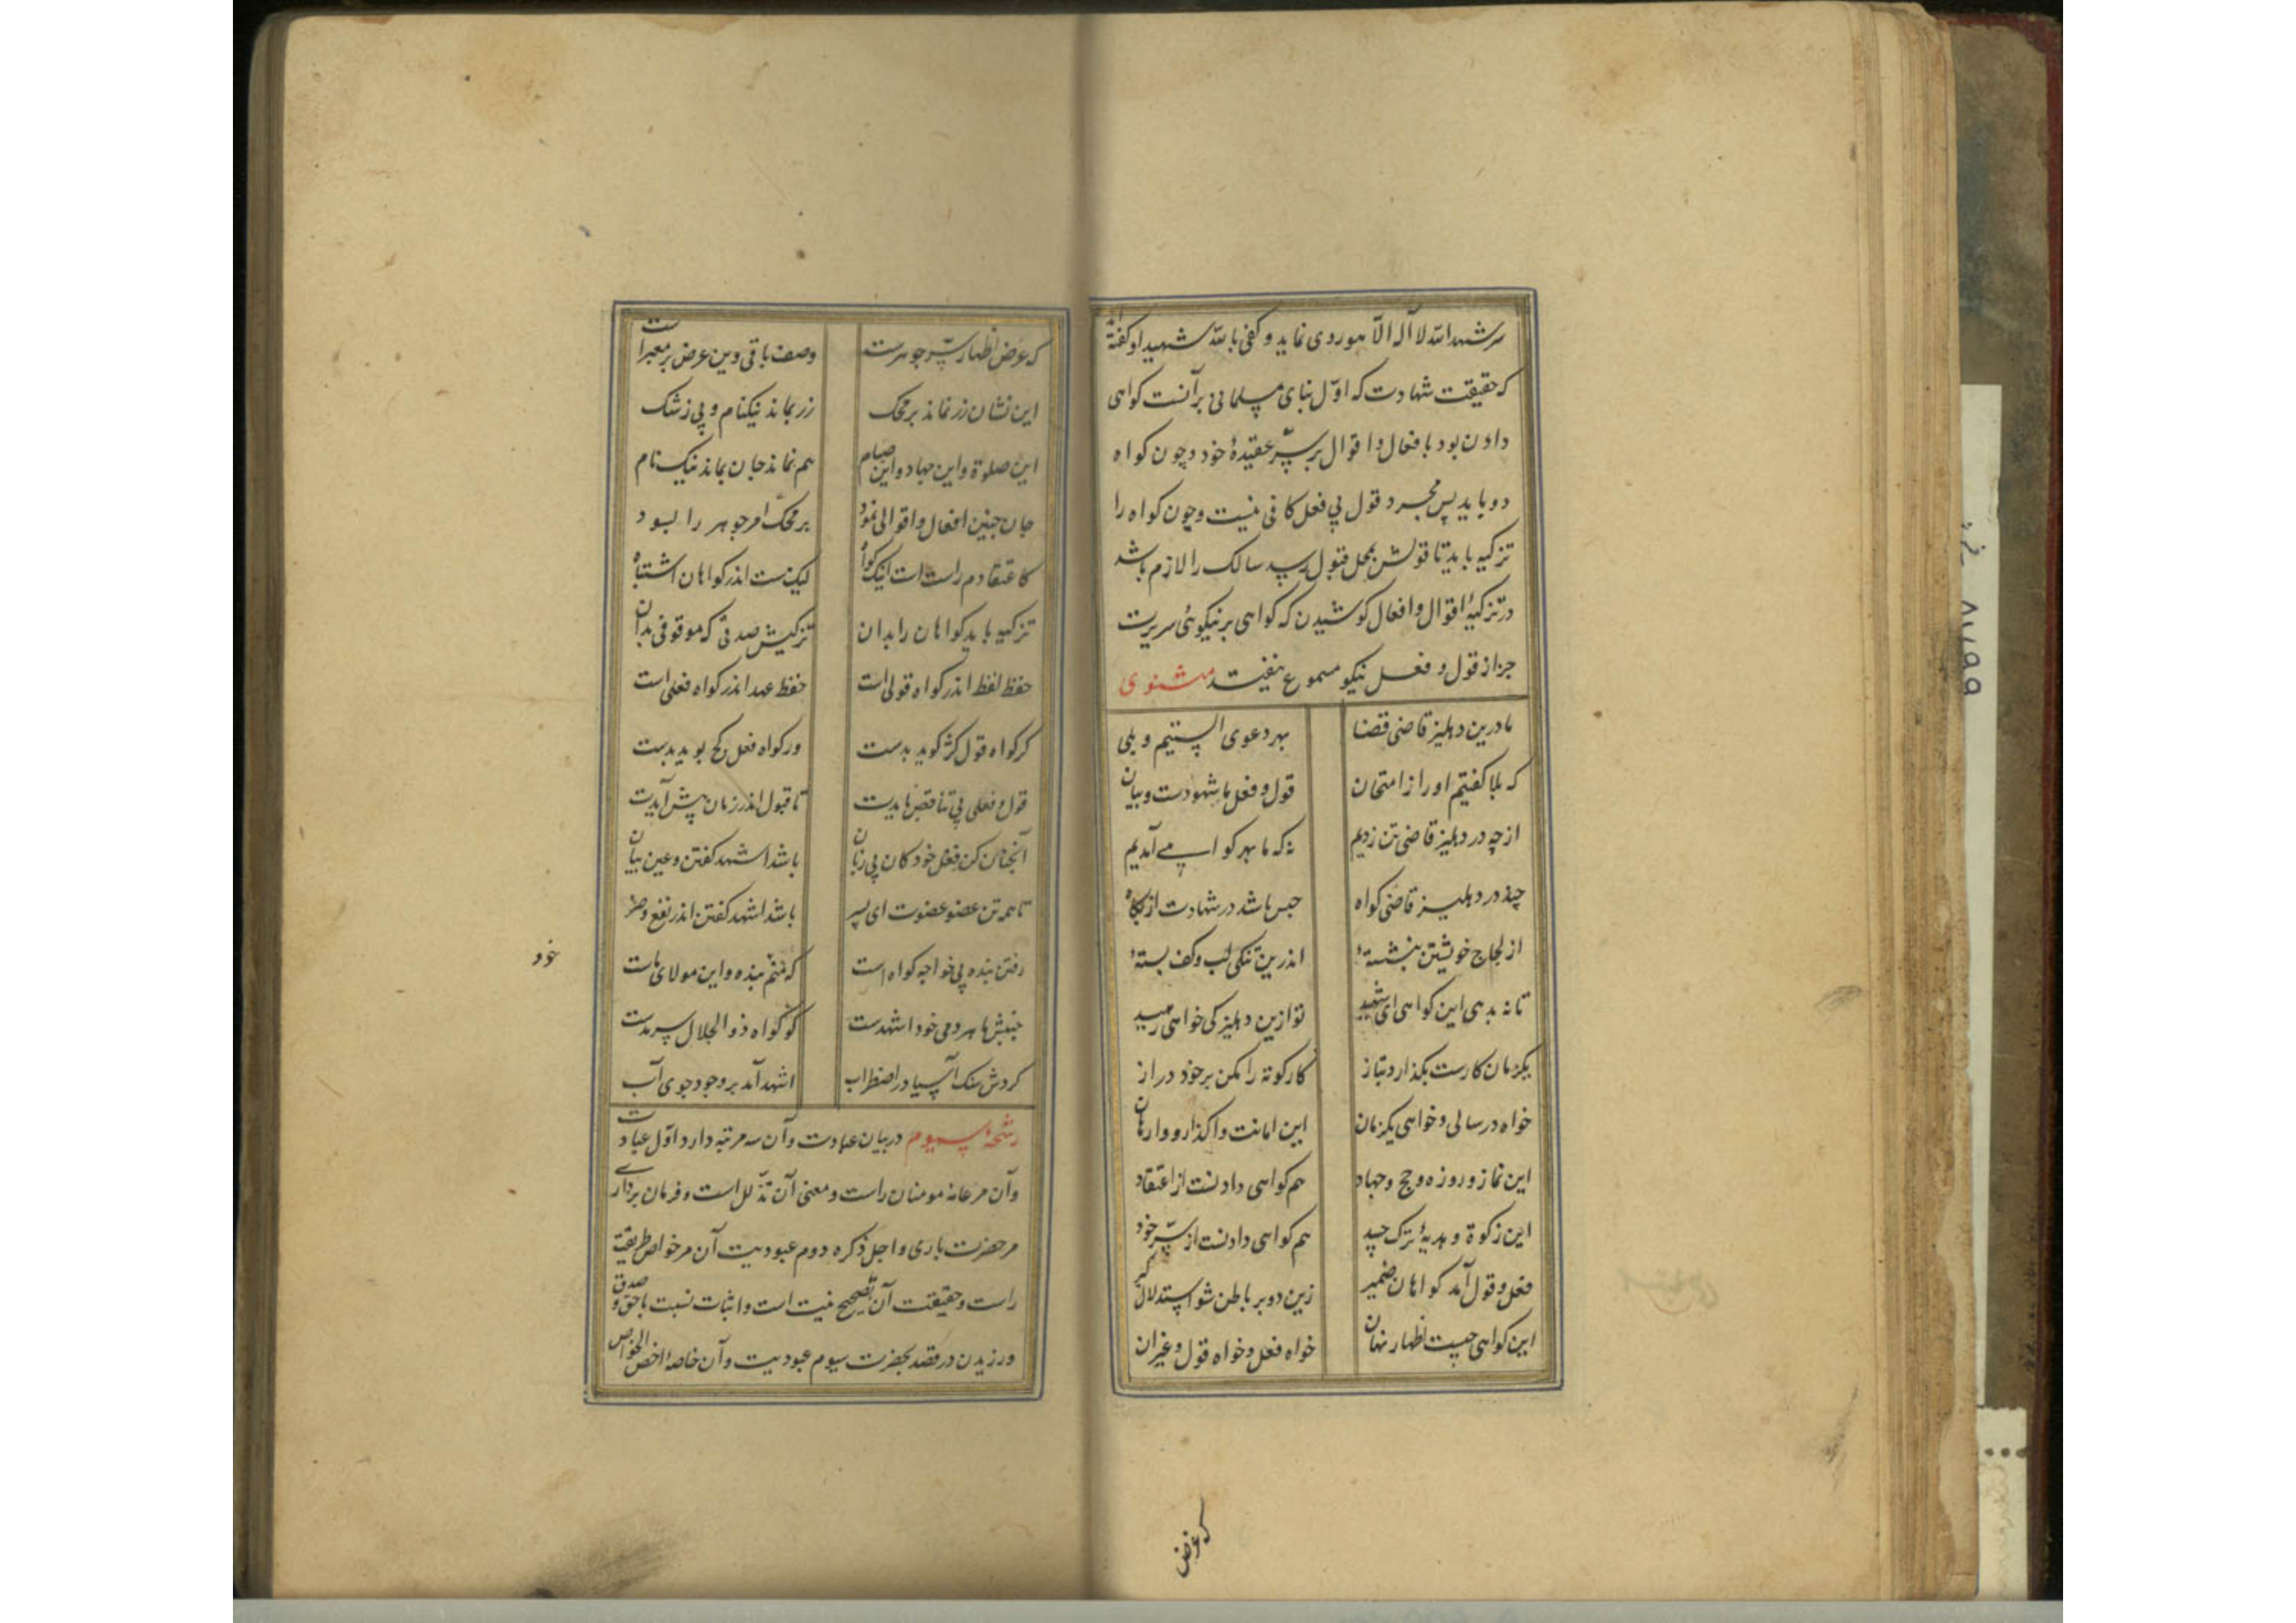 سر شهد الله لا اله الا هو روی نماید و کفی بالله شهیدا و کفته اند
که حقیقت شهادت که اول بنای مسلمانی بر آنست کواهی
دادن بود بافعال و اقوال بر سر عقیدهٔ خود و چون کواه
دو باید پس مجرد قول بی فعل کافی نیست و چون کواه را
تزکیه باید تا قولش بمحل قبول رسد سالک را لازم باشد
در تزکیهٔ اقوال و افعال کوشیدن که کواهی بر نیکوئی سریرت
جز از قول و فعل نیکو مسموع نیفتد مثنوی
ما درین دهلیز قاضی قضا بهر دعوی الستیم و بلی
که بلا کفتیم او را ز امتحان قول و فعل ما شهودست و بیان
از چه در دهلیز قاضی تن زدیم نه که ما بهر کواهی آمدیم
چند در دهلیز قاضی کواه حبس باشد در شهادت از پکاه
از لجاج خویشتن بنشستهٔ اندرین تنکی لب و کف بستهٔ
تا نه بدهی این کواهی ای شهید تو ازین دهلیز کی خواهی رهید
یکزمان کارست بکذار و بتاز کار کوته را مکن بر خود دراز
خواه در سالی و خواهی یکزمان این امانت واکذار و وارهان
این نماز و روزه و حج و جهاد هم کواهی دادنست از اعتقاد
این زکوة و هدیهٔ ترک حسد هم کواهی دادنست از سر خود
فعل و قول آمد کواهان ضمیر زین دو بر باطن شو استدلال کیر
این کواهی چیست اظهار نهان خواه فعل و خواه قول و غیر آن
که عرض
که عرض اظهار سر جوهرست وصف باقی وین عرض بر معبرست
این نشان زر نماند بر محک زر بماند نیکنام و بی ز شک
این صلوة و این جهاد و این صیام هم نماند جان بماند نیک نام
جان چنین افعال و اقوالی نمود بر محک امر جوهر را بسود
کاعتقادم راست است اینک کواه لیک هست اندر کواهان اشتباه
تزکیه باید کواهان را بدان تزکیش صدقی که موقوفی بدان
حفظ لفظ اندر کواه قولی است حفظ عهد اندر کواه فعلی است
کر کواه قول کژ کوید بدست ور کواه فعل کج پوید بدست
قول و فعلی بی تناقض بایدت تا قبول اندر زمان پیش آیدت
آنچنان کن فعل خود کان بی زبان باشد اشهد کفتن و عین بیان
تا همه تن عضو عضوت ای پسر باشد اشهد کفتن اندر نفع و ضر
رفتن بنده پی خواجه کواه است که منم بنده و این مولای ماست
خود
جنبش ما هر دمی خود اشهدست کو کواه ذو الجلال سرمدست
کردش سنک آسیا در اضطراب اشهد آمد بر وجود جوی آب
رشحهٔ سیوم در بیان عبادت و آن سه مرتبه دارد اول عبادت
و آن مر عامهٔ مومنان راست و معنی آن تذلل است و فرمان برداری
مر حضرت باری را جل ذکره دوم عبودیت آن مر خواص طریقت
راست و حقیقت آن تصحیح نیت است و اثبات نسبت با حق و صدق
ورزیدن در قصد بحضرت سیوم عبودیت و آن خاصهٔ اخص الخواص